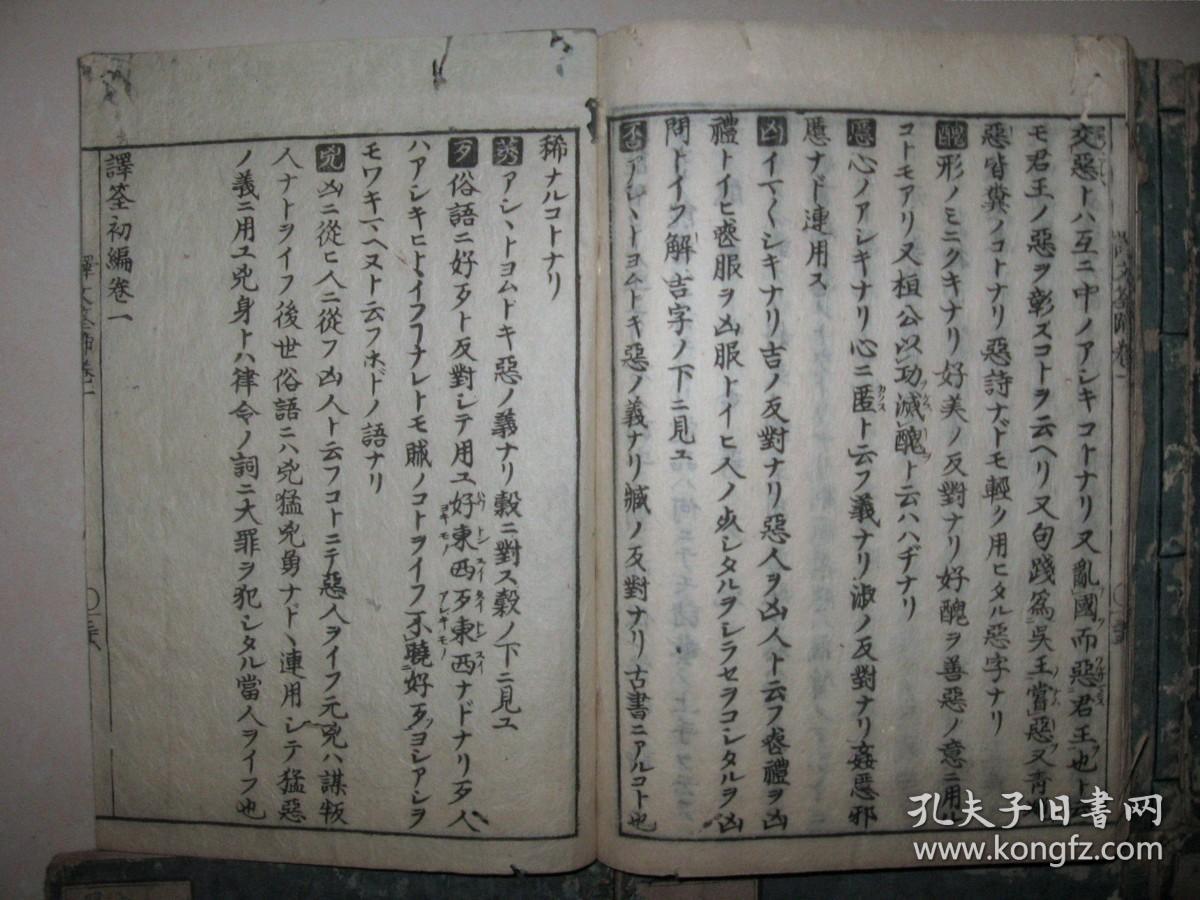 交惡トハ互ニ中ノアシキコトナリ又亂國而惡君王也ト
モ君王ノ惡ヲ彰スコトヲ云ヘリ又句踐爲吳王嘗惡又青
惡皆糞ノコトナリ惡詩ナドモ輕ク用ヒタル惡字ナリ
醜形ノミニクキナリ好美ノ反對ナリ好醜ヲ善惡ノ意ニ用
コトモアリ又桓公以功滅醜ト云ハハヂナリ
慝心ノアシキナリ心ニ匿ト云フ義ナリ淑ノ反對ナリ姦慝邪
慝ナド連用ス
凶イマ〱シキナリ吉ノ反對ナリ惡人ヲ凶人ト云フ喪禮ヲ凶
禮トイヒ喪服ヲ凶服トイヒ人ノ死シタルヲシラセヲコシタルヲ凶
問トイフ解吉字ノ下ニ見ユ
否アシヽトヨムトキ惡ノ義ナリ臧ノ反對ナリ古書ニアルコト也
稀ナルコトナリ
莠アシヽトヨムトキ惡ノ義ナリ穀ニ對ス穀ノ下ニ見ユ
歹俗語ニ好歹ト反對シテ用ユ好東西歹東西ナドナリ歹人
ハアシキヒトヽイフヿナレトモ賊ノコトヲイフ不曉好歹ヨシアシヲ
モワキマヘヌト云フホドノ語ナリ
兇凶ニ從ヒ人ニ從フ凶人ト云フコトニテ惡人ヲイフ元兇ハ謀叛
人ナトヲイフ後世俗語ニハ兇猛兇勇ナドヽ連用シテ猛惡
ノ義ニ用ユ兇身トハ律令ノ詞ニ大罪ヲ犯シタル當人ヲイフ也
譯筌初編卷一
孔夫子旧书网
www.kongfz.com